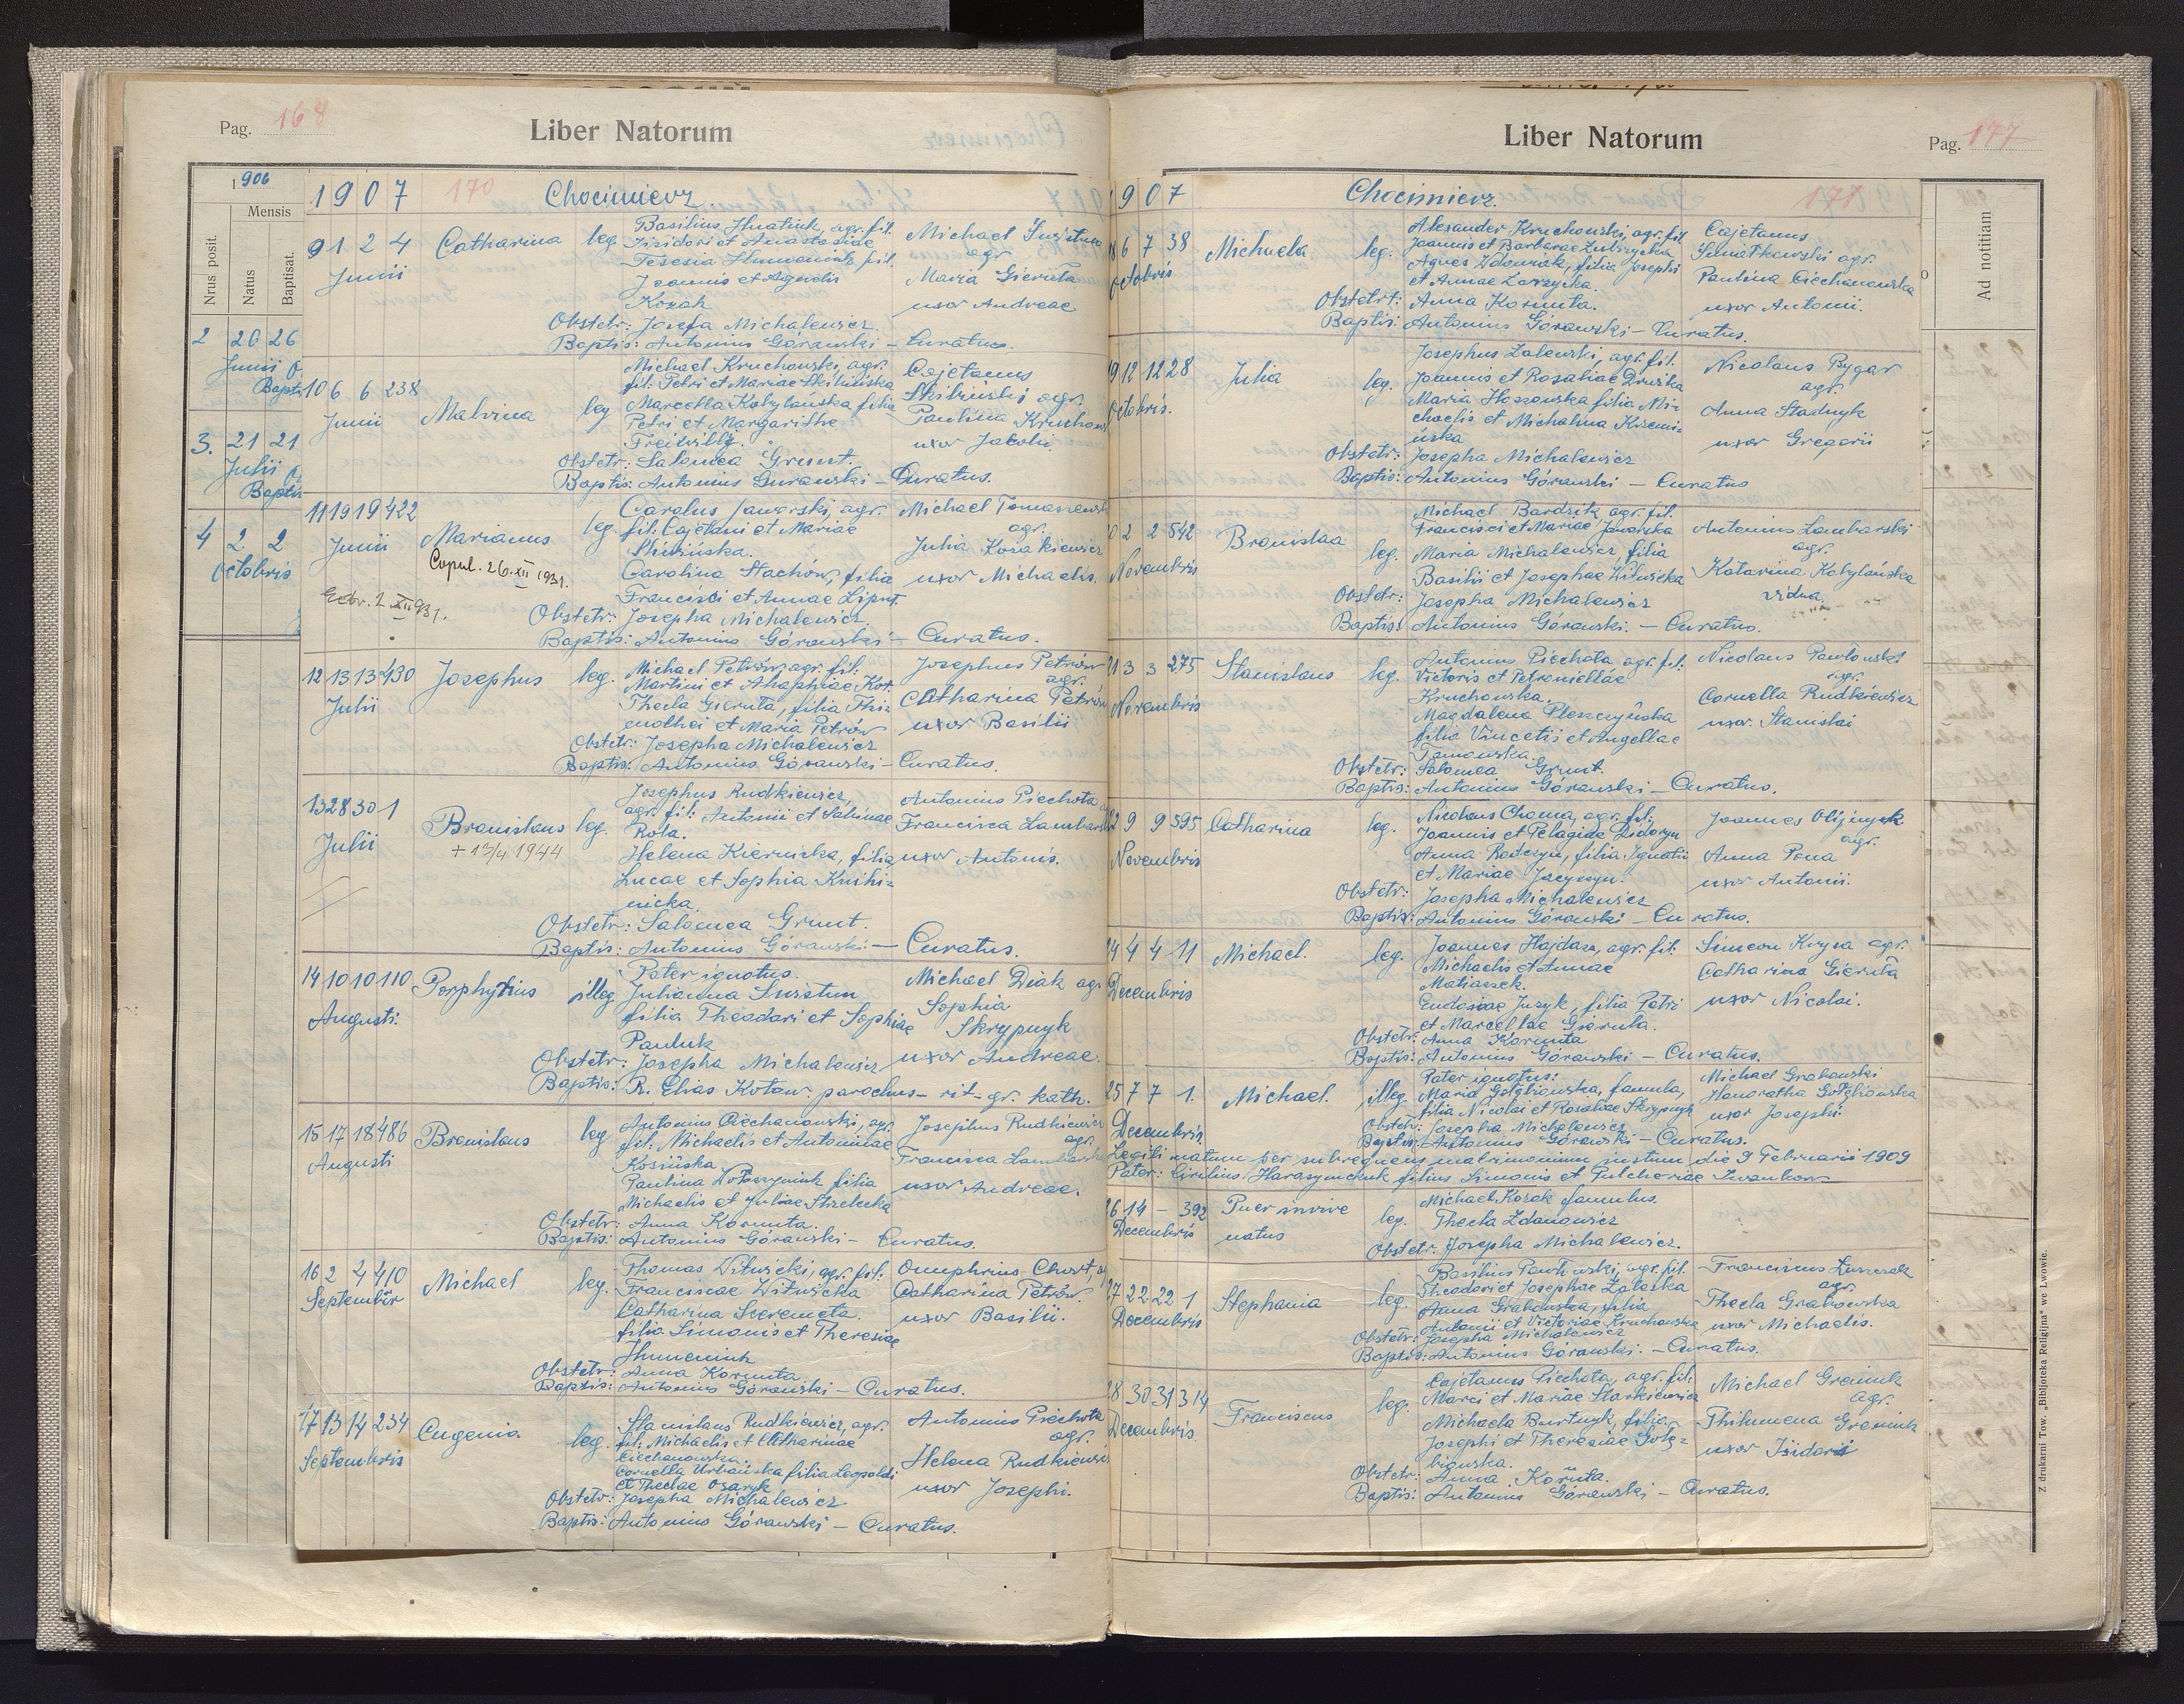 Pag. 168
Liber Natorum
1906
Mensis
Nrus posit.
Natus
Baptisat.
2 26 26
Junii
Bapti
3. 21 21
Julii
Baptis
4 2 2
Octobris
1907 170 Chocimierz
9 1. 2 4 Catharina leg.
Junii
Basilius Hnatiuk, agr. fil.
Isidori et Anastasiae
Teresia Humeniuk fil.
Joannis et Agnetis
Kozak
Michael Swistun
agr
Maria Gieruta
uxor Andreae
Obstetr: Josefa Michalewicz.
Baptis: Antonius Górawski — Curatus.
10 6 6 238 Malvina leg
Junii
Michael Kruchowski, agr.
fil: Petri et Mariae Skibińska
Marcella Kobylańska filia
Petri et Margarithe
Cajetanus
Skibiński agr.
Paulina Kruchows
uxor Jakobi
Obstetr: Salomea Grunt.
Baptis: Antonius Gurawski — Curatus.
11 19 19 422 Marianus leg.
Junii
Copul. 26. XII 1931.
2 XII 931.
Carolus Jaworski, agr.
fil. Cajetani et Mariae
Śliwińska.
Carolina Stachów, filia
Francisci et Annae Lipnt.
Michael Tomaszewsk
agr.
Julia Kozakiewicz
uxor Michaelis.
Obstetr: Josepha Michalewicz
Baptis: Antonius Górawski — Curatus.
12 13 13 430 Josephus leg.
Julii
Michael Petrów, agr. fil:
Martini et Ahaphiae Kot.
Thecla Gieruta, filia Thi=
mothei et Maria Petrów
Josephus Petrów
agr.
Catharina Petrów
uxor Basilii
Obstetr: Josepha Michalewicz
Baptis: Antonius Górawski — Curatus.
13 28 30 1 Bronislaus leg.
Julii
+ 13/4 1944
Josephus Rudkiewicz,
agr. fil: Antonii et Sabinae
Rola.
Helena Kiernicka, filia
Lucae et Sophia Knihi=
nicka.
Antonius Piechota
Francisca Lambarsk
uxor Antonis.
Obstetr: Salomea Grunt.
Baptis: Antonius Górawski — Curatus.
14 10 10 110 Porphyrius illeg.
Augusti.
Pater ignotus.
Julianna Swistun
filia Theodori et Sophiae
Pauluk
Michael Diak agr
Sophia
Skrypnyk
uxor Andreae.
Obstetr: Josepha Michalewicz
Baptis: R. Elias Kotow. parochus — rit. gr. kath.
15 17 18 486 Bronislaus leg
Augusti
Antonius Ciechanowski, agr.
fil: Michaelis et Antoninae
Kosińska
Paulina Wołoszyniuk filia
Michaelis et Juliae Strzelecka
Josephus Rudkiewicz
agr.
Francisca Lambarska
uxor Andreae.
Obstetr: Anna Kormuta.
Baptis: Antonius Górawski — Curatus.
16 2 4 410 Michael leg.
Septembr
Thomas Witwicki, agr. fil:
Franciscae Witwicka
Catharina Szeremeta.
filia Simonis et Theresiae
Humeniuk
Onuphrius Chwst,
Catharina Petrów
uxor Basilii.
Obstetr: Anna Kormuta
Baptis: Antonius Górawski — Curatus.
17 13 14 234 Eugenia leg.
Septembris
Stanislaus Rudkiewicz, agr.
fil: Michaelis et Catharinae
Ciechanowska
Cornella Urbańska filia Leopoldi
et Theclae Osaryk
Antonius Piechota
agr.
Helena Rudkiewicz
uxor Josephi.
Obstetr: Josepha Michalewicz
Baptis: Antonius Górawski — Curatus.
Liber Natorum
Pag. 177
Ad notitiam
1907 Chocimierz. 171
18 6 7 38 Michaela leg.
Octobris
Alexander Kruchowski, agr. fil
Joannis et Barbarae Zubrzycka
Agnes Zdowniak, filia Josephi
et Annae Zarzycka.
Cajetanus
Smiałkowski agr.
Paulina Ciechanowska
uxor Antonii.
Obstetr: Anna Kormuta.
Baptis: Antonius Górawski — Curatus.
19 12 12 28 Julia leg.
Octobris.
Josephus Zalewski, agr. fil.
Joannis et Rosaliae Druska
Maria Hoszowska filia Mi=
chaelis et Michalina Krzemi=
ńska
Nicolaus Pygar
agr.
Anna Stadnyk
uxor Gregorii
Obstetr: Josepha Michalewicz
Baptis: Antonius Górawski — Curatus
20 2 2 542 Bronislaa leg.
Novembris
Michael Bardzik agr. fil.
Francisci et Mariae Jaworska
Maria Michalewicz, filia
Basilii et Josephae Witwicka
Antonius Lambarski
agr.
Katarina Kobylańska
vidua.
Obstetr: Josepha Michalewicz
Baptis: Antonius Górawski. — Curatus.
21 3 3 275 Stanislaus leg.
Novembris
Antonius Piechota agr. fil:
Victoris et Petronellae
Kruchowska.
Magdalena Płoszczyńska
filia Vincetii et Angellae
Tarnowska.
Nicolaus Pawłowski
agr.
Cornella Rudkiewicz
uxor Stanislai
Obstetr: Salomea Grunt.
Baptis: Antonius Górawski — Curatus.
22 9 9 595 Catharina leg.
Novembris
Nicolaus Choma, agr. fil.
Joannis et Pelagiae Sidoryn
Anna Redczyn, filia Ignatii
et Mariae Jacyszyn.
Joannes Olijnyk
agr.
Anna Pona
uxor Antonii.
Obstetr: Josepha Michalewicz
Baptis: Antonius Górawski — Curatus.
24 4 4 11 Michael. leg.
Decembris
Joannes Hajdasz, agr. fil.
Michaelis et Annae
Matiaszek.
Eudosiae Juzyk, filia Petri
et Marcellae Gieruta.
Simeon Kryna agr.
Catharina Gieruta
uxor Nicolai.
Obstetr: Anna Kormuta
Baptis: Antonius Górawski — Curatus.
25 7 7 1. Michael. illeg.
Decembris
Pater ignotus:
Maria Gołębiowska, famula,
filia Nicolai et Rosaliae Skrypnyk
Michael Grabowski
Honoratha Gołębiowska
uxor Josephi
Obstetr: Josepha Michalewicz
Baptis: Antonius Górawski — Curatus.
Legitimatum per subsequens matrimonium justum die 9 Februarii 1909
Pater: Cirilius Harasymczuk filius Simonis et Pulcheriae Iwankow
26 14 — 392 Puer invive leg.
Decembris natus
Michael Kozak famulus.
Thecla Zdanowicz
Obstetr: Josepha Michalewicz.
27 22 22 1 Stephania leg.
Decembris
Basilius Pawłowski, agr. fil.
Theodori et Josephae Zaleska
Anna Grabowska, filia
Antonii et Victoriae Kruchowska
Franciscus Łuszczak
agr.
Thecla Grabowska
uxor Michaelis.
Obstetr: Josepha Michalewicz
Baptis: Antonius Górawski. — Curatus.
28 30 31 314 Franciscus leg.
Decembris.
Cajetanus Piechota, agr. fil.
Marci et Mariae Starkiewicz
Michaela Burtnyk, filia
Josephi et Theresiae Gołę=
biowska.
Michael Greniuk
agr.
Philumena Greniuk
uxor Isidori
Obstetr: Anna Kormuta.
Baptis: Antonius Górawski — Curatus.
Z drukarni Tow. „Bibljoteka Religijna" we Lwowie.